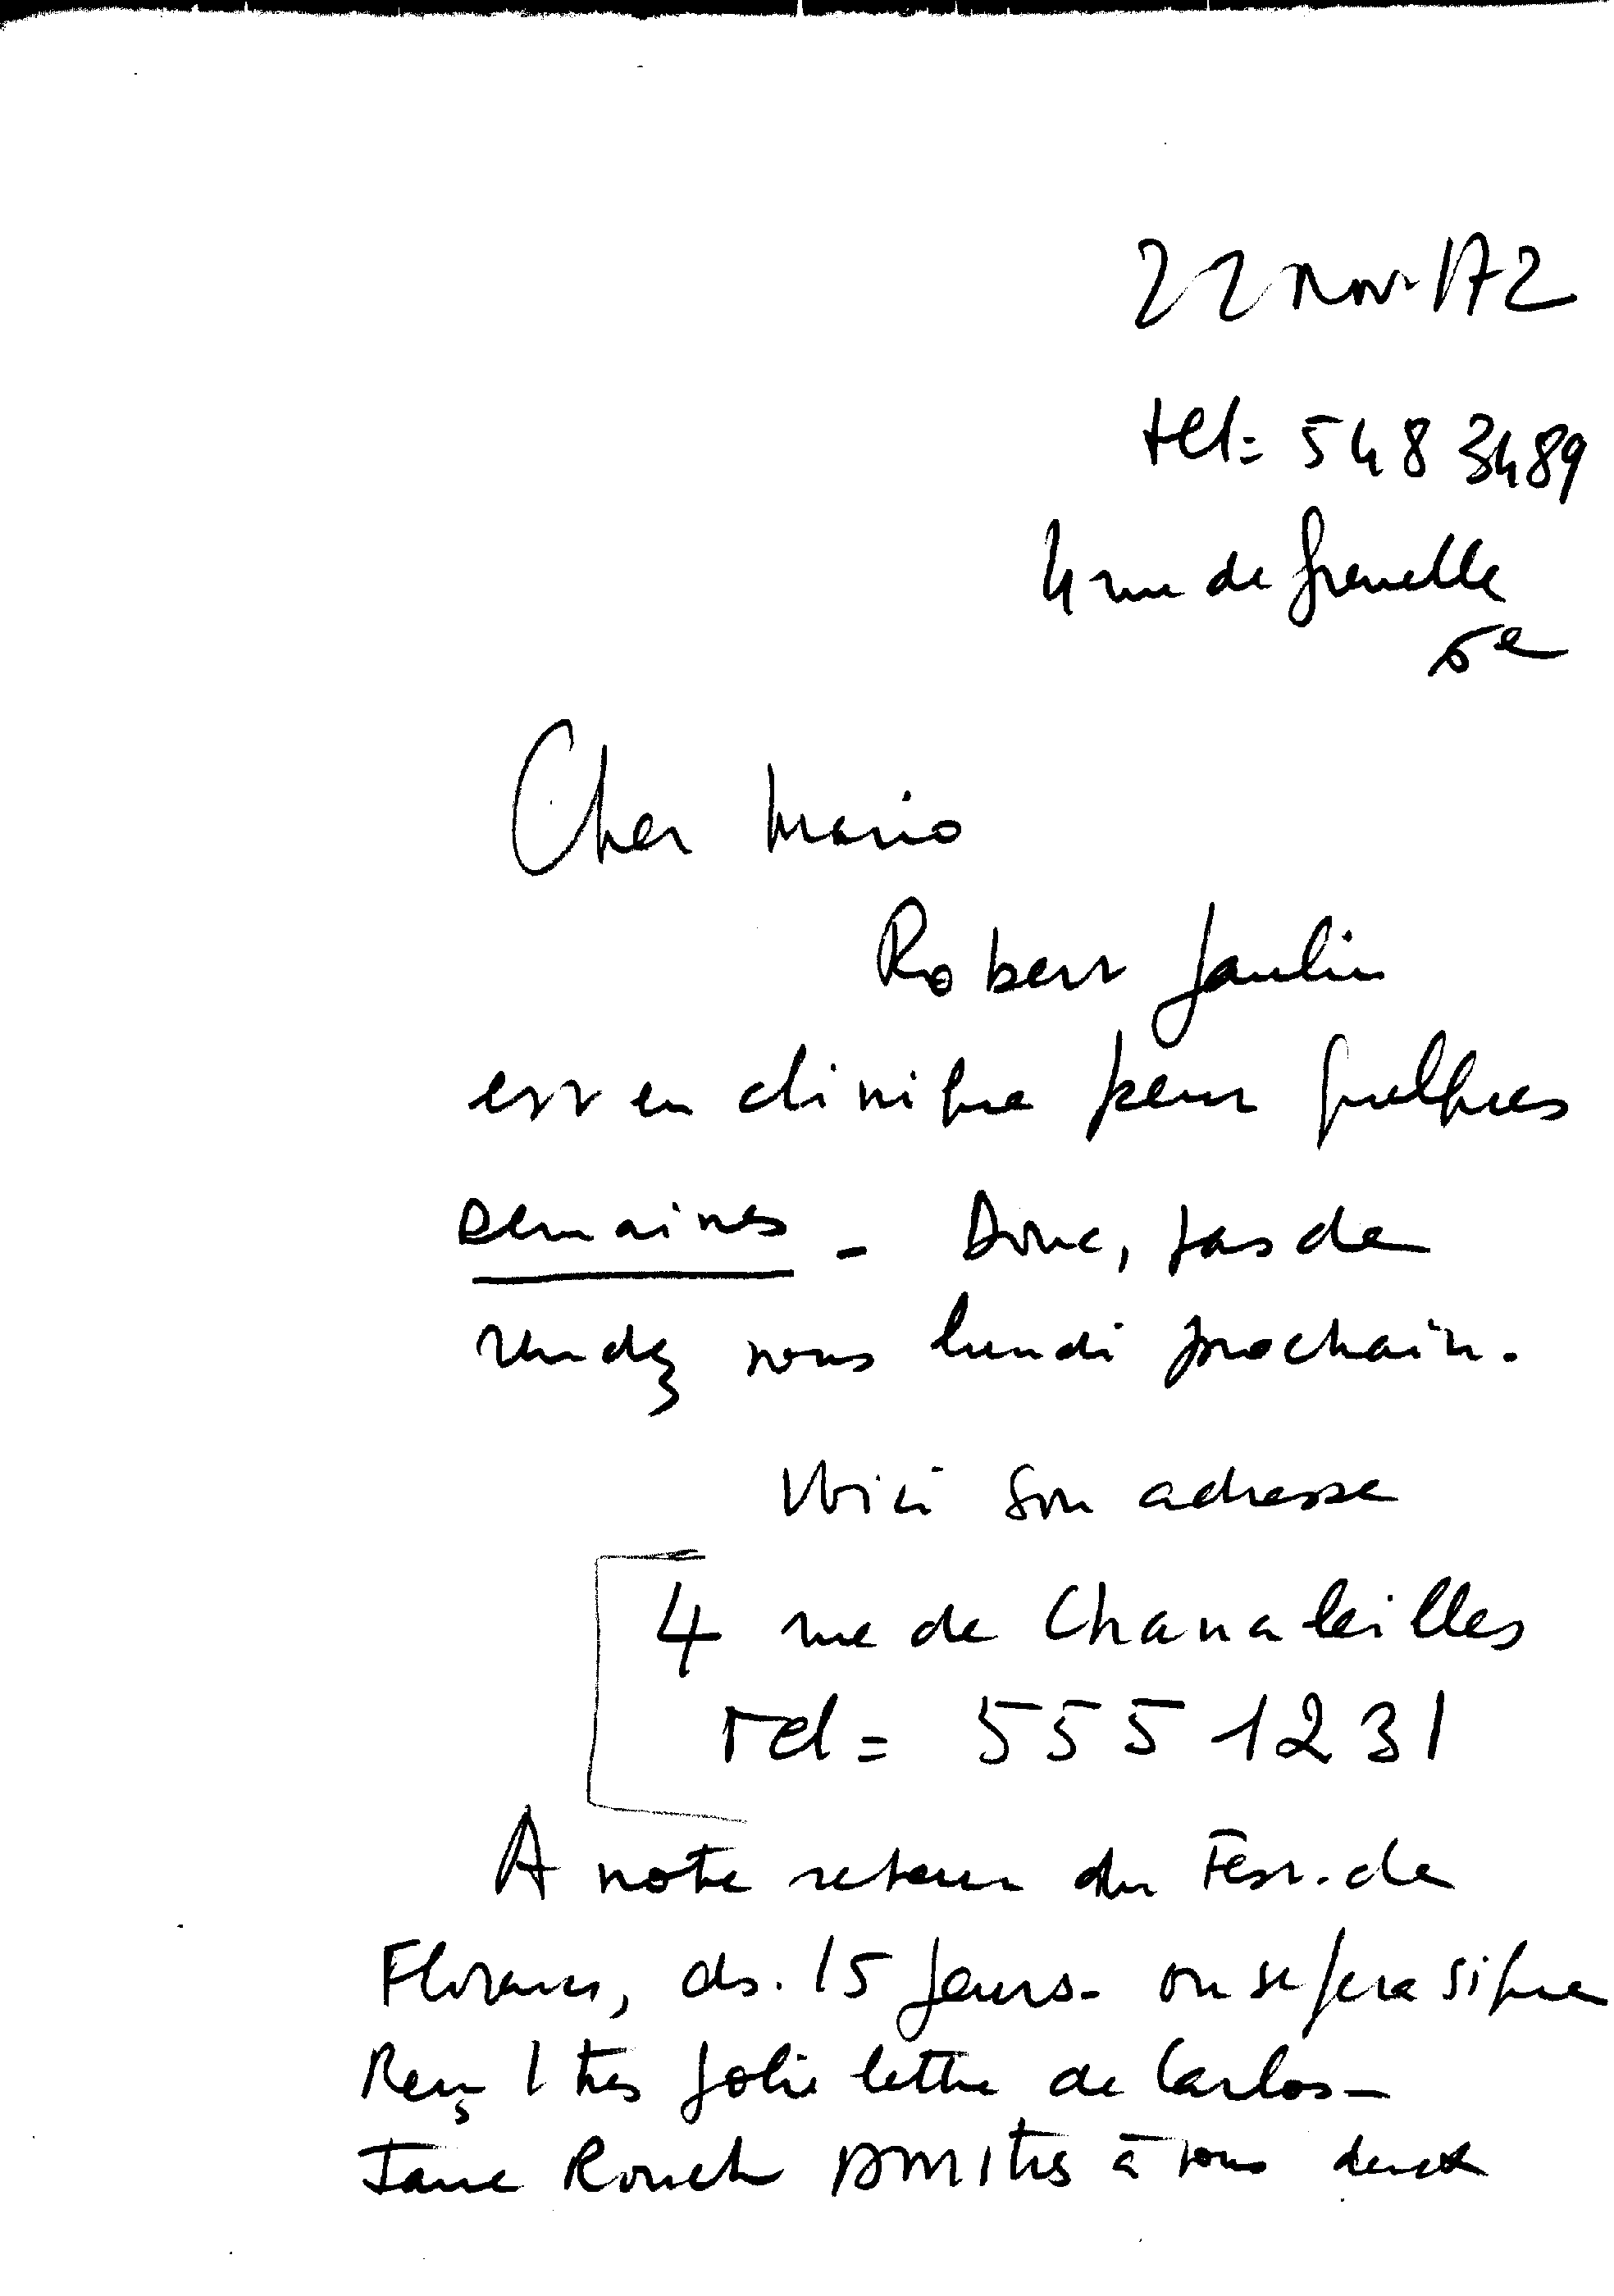 22 Nov. 172
tel = 548 3489
4 rue de Grenelle
6e
Cher Mario
Robert Jaulin
est en clinique pour quelques
semaines - Donc, pas de
rendez vous lundi prochain.
Voici son adresse
4 rue de Chanaleilles
Tel = 555 1231
A notre retour du Fest. de
Florence, ds. 15 jours - on se fera signe
Reçu 1 très jolie lettre de Carlos -
Jane Rouch AMITIés à vous deux